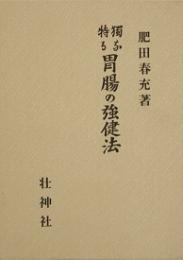 肥田春充著
独特なる胃腸の強健法
壮神社